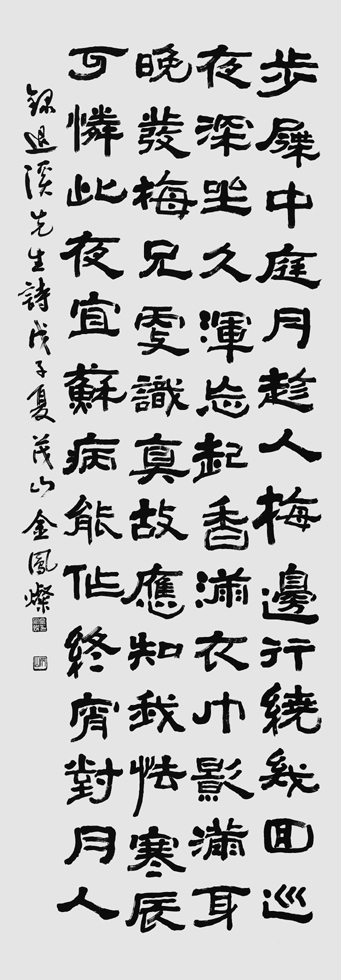 步屧中庭月趁人梅邊行繞幾回巡
夜深坐久渾忘起香滿衣巾影滿身
晚發梅兄更識真故應知我怯寒辰
可憐此夜宜蘇病能作終宵對月人
錄退溪先生詩戊子夏茂山金鳳燦